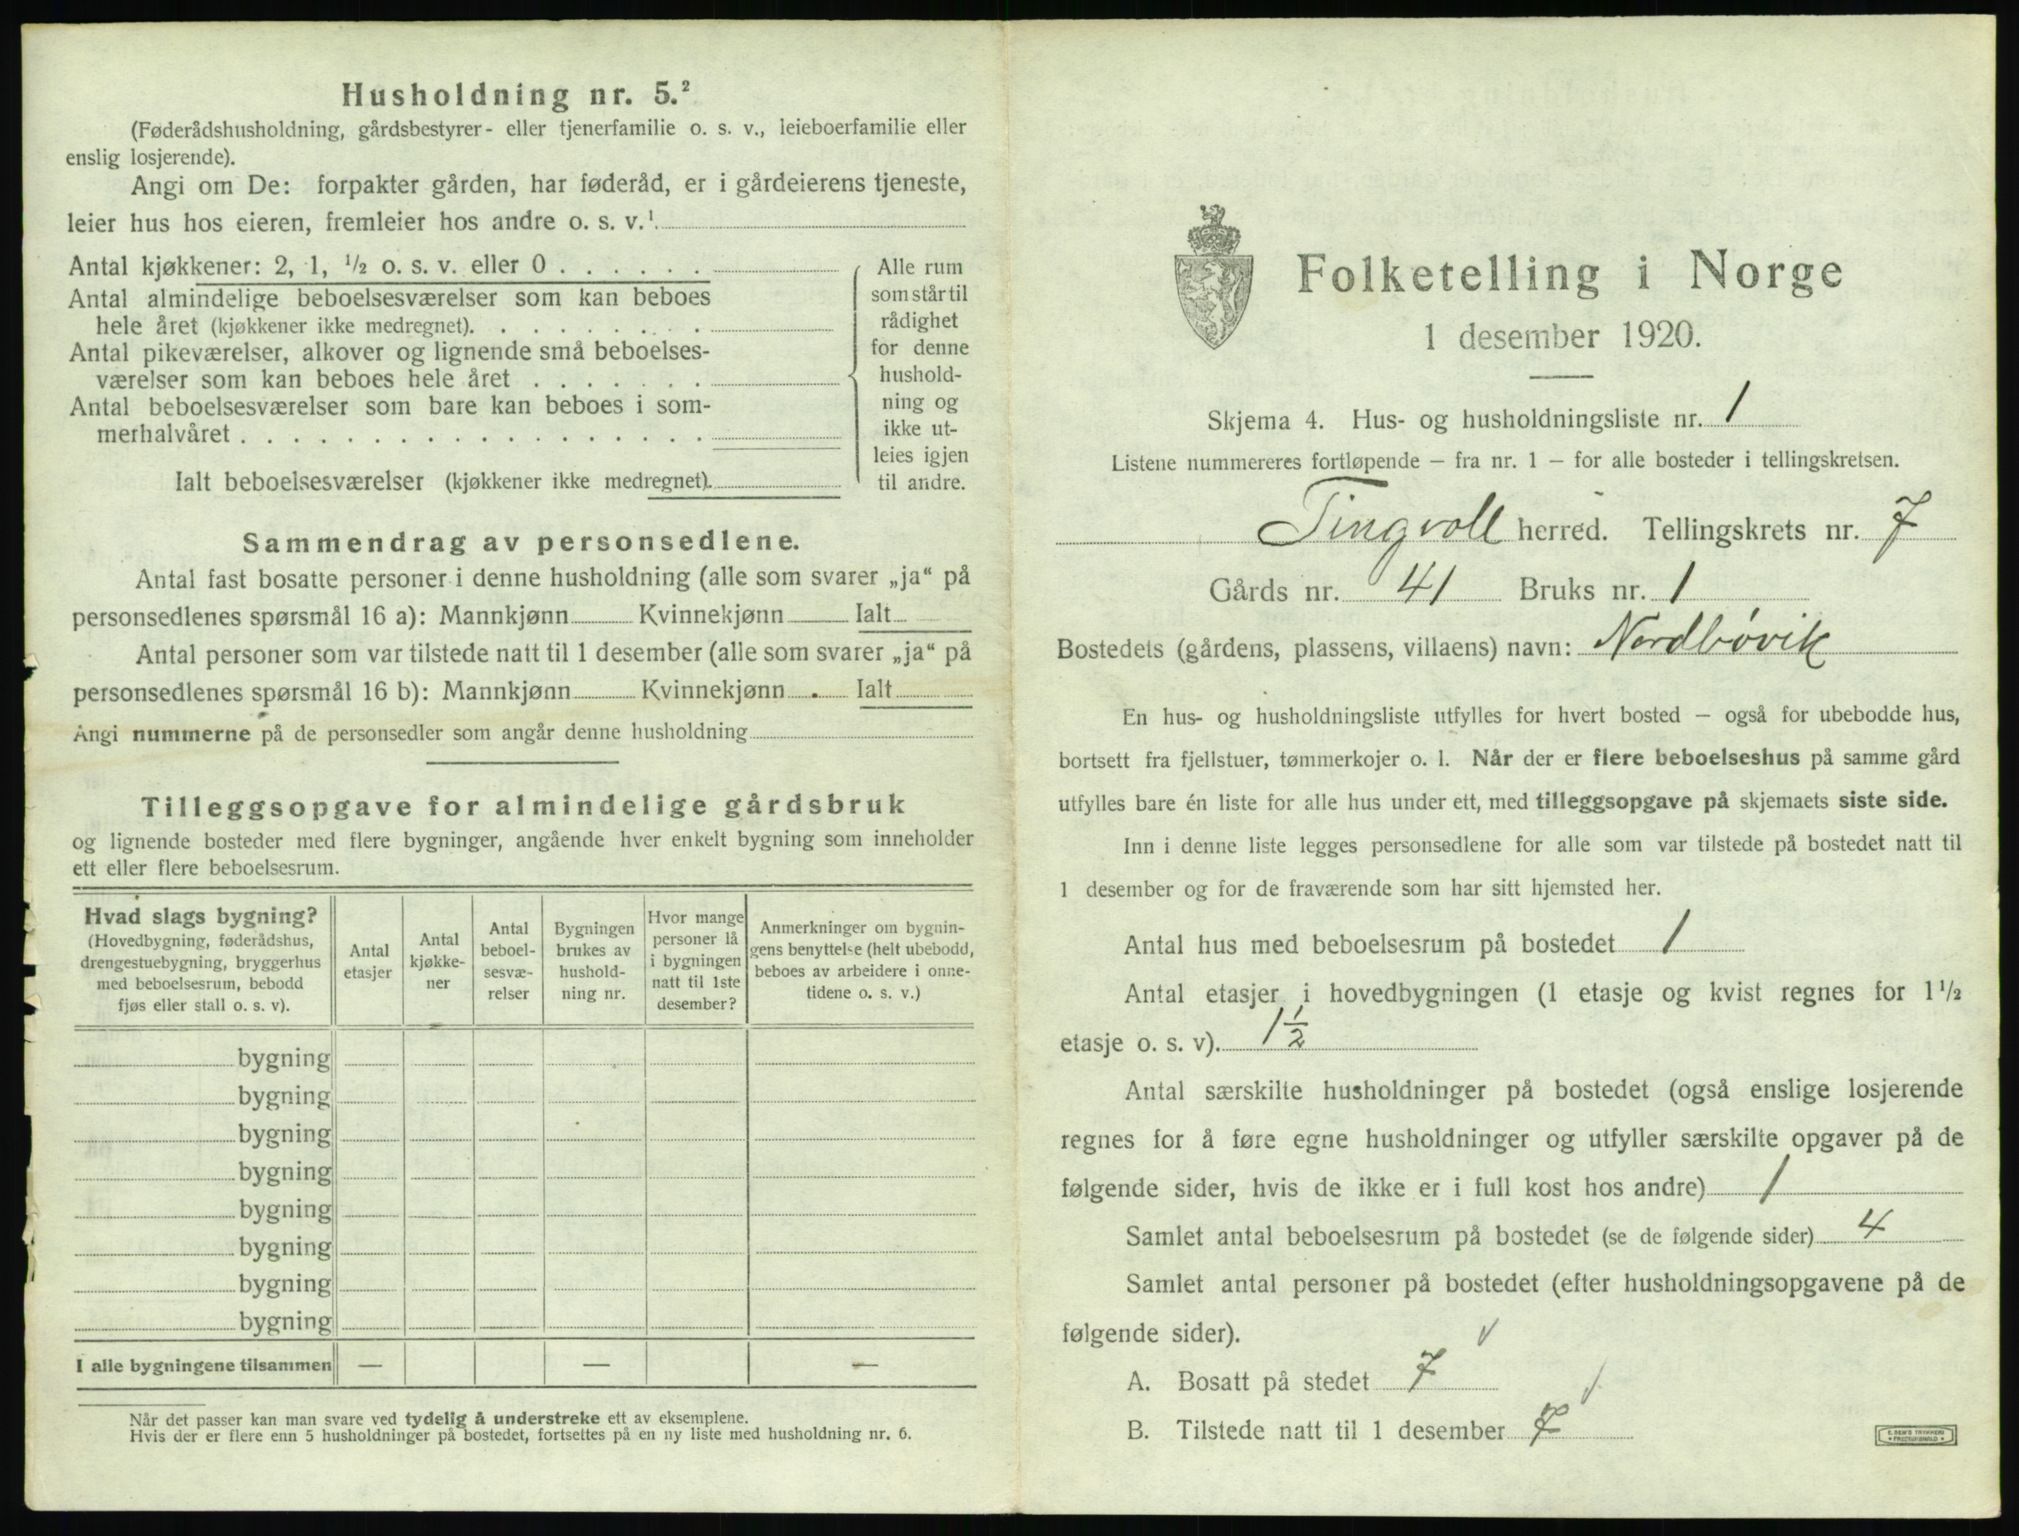 Husholdning nr. 5.²
(Føderådshusholdning, gårdsbestyrer- eller tjenerfamilie o. s. v., leieboerfamilie eller
enslig losjerende).
Angi om De: forpakter gården, har føderåd, er i gårdeierens tjeneste,
leier hus hos eieren, fremleier hos andre o. s. v.¹
Antal kjøkkener: 2, 1, ½ o. s. v. eller 0 . . . . . .
Antal almindelige beboelsesværelser som kan beboes
hele året (kjøkkener ikke medregnet). . . . . . . . .
Antal pikeværelser, alkover og lignende små beboelses-
værelser som kan beboes hele året . . . . . . .
Antal beboelsesværelser som bare kan beboes i som-
merhalvåret . . . . . . . . . . . . . . . . . .
Ialt beboelsesværelser (kjøkkener ikke medregnet).
Alle rum
som står til
rådighet
for denne
hushold-
ning og
ikke ut-
leies igjen
til andre.
Sammendrag av personsedlene.
Antal fast bosatte personer i denne husholdning (alle som svarer „ja“ på
personsedlenes spørsmål 16 a): Mannkjønn Kvinnekjønn Ialt
Antal personer som var tilstede natt til 1 desember (alle som svarer „ja“ på
personsedlenes spørsmål 16 b): Mannkjønn Kvinnekjønn Ialt
Angi nummerne på de personsedler som angår denne husholdning
Tilleggsopgave for almindelige gårdsbruk
og lignende bosteder med flere bygninger, angående hver enkelt bygning som inneholder
ett eller flere beboelsesrum.
Hvad slags bygning?
(Hovedbygning, føderådshus,
drengestuebygning, bryggerhus
med beboelsesrum, bebodd
fjøs eller stall o. s. v).
Antal
etasjer
Antal
kjøkke-
ner
Antal
beboel-
sesvæ-
relser
Bygningen
brukes av
hushold-
ning nr.
Hvor mange
personer lå
i bygningen
natt til 1ste
desember?
Anmerkninger om bygnin-
gens benyttelse (helt ubebodd,
beboes av arbeidere i onne-
tidene o. s. v.)
bygning
bygning
bygning
bygning
bygning
bygning
bygning
bygning
I alle bygningene tilsammen — — —
Når det passer kan man svare ved tydelig å understreke ett av eksemplene.
Hvis der er flere enn 5 husholdninger på bostedet, fortsettes på en ny liste med husholdning nr. 6.
Folketelling i Norge
1 desember 1920.
Skjema 4. Hus- og husholdningsliste nr. 1
Listene nummereres fortløpende – fra nr. 1 – for alle bosteder i tellingskretsen.
Tingvoll herred. Tellingskrets nr. 7
Gårds nr. 41 Bruks nr. 1
Bostedets (gårdens, plassens, villaens) navn: Nordbøvik
En hus- og husholdningsliste utfylles for hvert bosted – også for ubebodde hus,
bortsett fra fjellstuer, tømmerkojer o. l. Når der er flere beboelseshus på samme gård
utfylles bare én liste for alle hus under ett, med tilleggsopgave på skjemaets siste side.
Inn i denne liste legges personsedlene for alle som var tilstede på bostedet natt til
1 desember og for de fraværende som har sitt hjemsted her.
Antal hus med beboelsesrum på bostedet 1
Antal etasjer i hovedbygningen (1 etasje og kvist regnes for 1½
etasje o. s. v). 1½
Antal særskilte husholdninger på bostedet (også enslige losjerende
regnes for å føre egne husholdninger og utfyller særskilte opgaver på de
følgende sider, hvis de ikke er i full kost hos andre) 1
Samlet antal beboelsesrum på bostedet (se de følgende sider) 4
Samlet antal personer på bostedet (efter husholdningsopgavene på de
følgende sider).
A. Bosatt på stedet 7
B. Tilstede natt til 1 desember 7